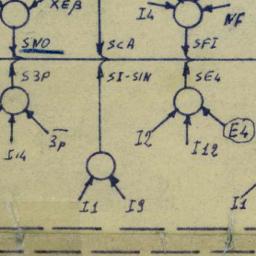 XEβ I4 NF
SNO SCA SFI
S3P SI-SIN SE4
I14 3p I2 I12 E4
I1 I9 I1